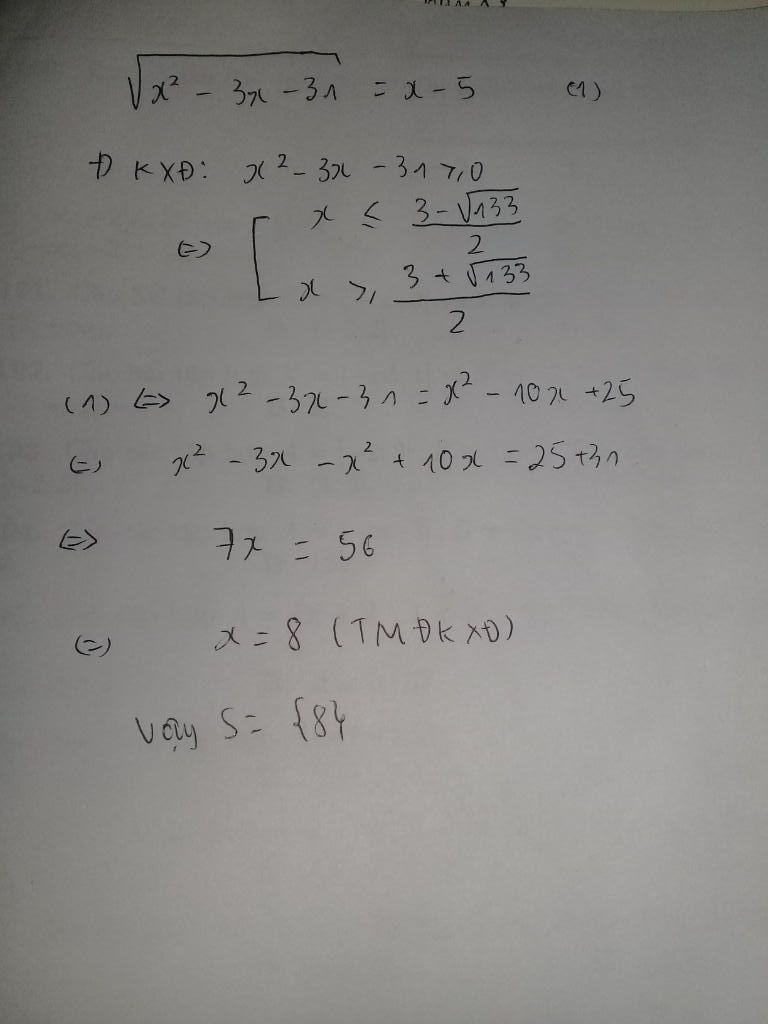 √(x² - 3x - 31) = x - 5 (1)
ĐKXĐ: x² - 3x - 31 ≥ 0
⇔ [ x ≤ (3 - √133)/2
x ≥ (3 + √133)/2
(1) ⇔ x² - 3x - 31 = x² - 10x + 25
⇔ x² - 3x - x² + 10x = 25 + 31
⇔ 7x = 56
⇔ x = 8 (TMĐKXĐ)
Vậy S = {8}